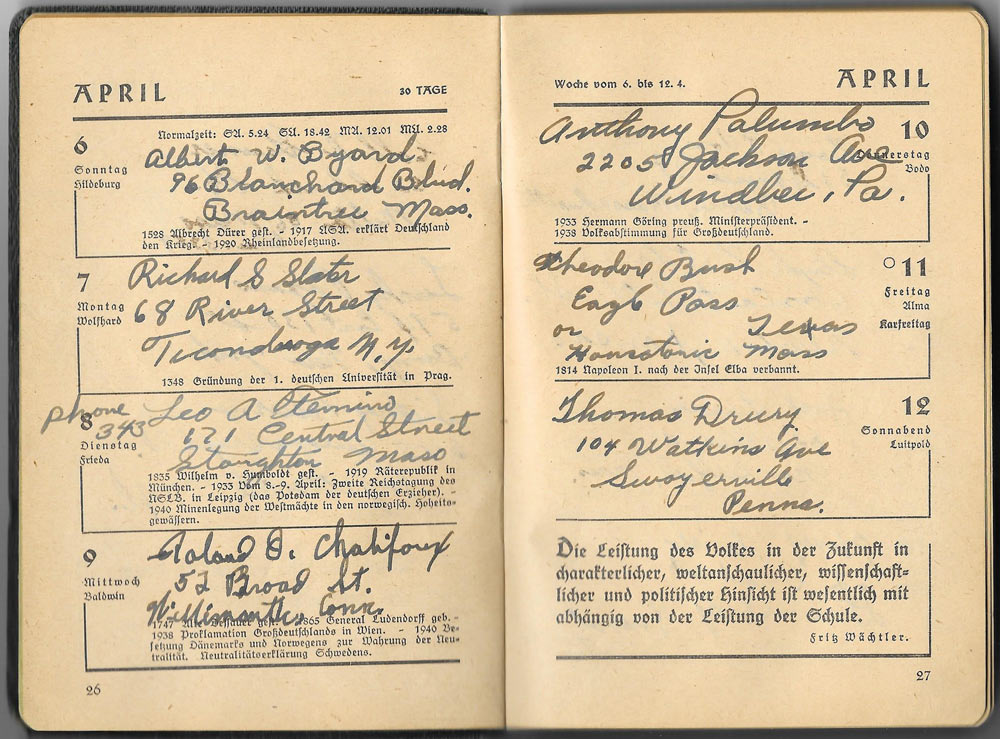 APRIL
30 TAGE
6
Sonntag
Hildeburg
Normalzeit: SA. 5.24 SU. 18.42 MA. 12.01 MU. 2.28
Albert W. Byard
96 Blanchard Blvd.
Braintree Mass.
1528 Albrecht Dürer gest. - 1917 USA. erklärt Deutschland
den Krieg. - 1920 Rheinlandbesetzung.
7
Montag
Wolfhard
Richard S Slater
68 River Street
Ticonderoga N.Y.
1348 Gründung der 1. deutschen Universität in Prag.
8
Dienstag
Frieda
phone
343
Leo A
171 Central Street
Stoughton Mass
1835 Wilhelm v. Humboldt gest. - 1919 Räterepublik in
München. - 1933 Vom 8.-9. April: Zweite Reichstagung des
NSLB. in Leipzig (das Potsdam der deutschen Erzieher). -
1940 Minenlegung der Westmächte in den norwegisch. Hoheits-
gewässern.
9
Mittwoch
Baldwin
Roland O. Chalifoux
52 Broad St.
Willimantic, Conn.
1747 Alte Dessauer gest. - 1865 General Ludendorff geb. -
1938 Proklamation Großdeutschlands in Wien. - 1940 Be-
setzung Dänemarks und Norwegens zur Wahrung der Neu-
tralität. Neutralitätserklärung Schwedens.
26
Woche vom 6. bis 12. 4.
APRIL
10
Donnerstag
Bodo
Anthony Palumbo
2205 Jackson Ave
Windber, Pa.
1933 Hermann Göring preuß. Ministerpräsident. -
1938 Volksabstimmung für Großdeutschland.
11
Freitag
Alma
Karfreitag
Theodore Bush
Eagle Pass
or Texas
Housatonic Mass
1814 Napoleon I. nach der Insel Elba verbannt.
12
Sonnabend
Luitpold
Thomas Drury
104 Watkins Ave
Swoyerville
Penna.
Die Leistung des Volkes in der Zukunft in
charakterlicher, weltanschaulicher, wissenschaft-
licher und politischer Hinsicht ist wesentlich mit
abhängig von der Leistung der Schule.
Fritz Wächtler.
27